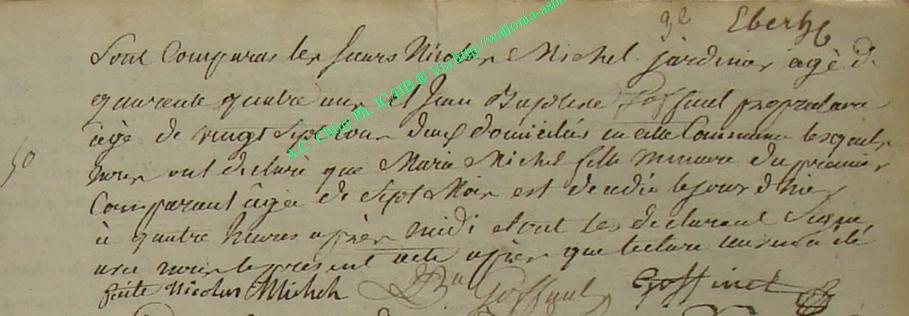 3e Eberh
Sont Comparus les sieurs Nicolas Michel jardinier âgé de
quarente quatre ans et Jean Baptiste Goffinet propriétaire
âgé de vingt sept tous deux domiciliés en cette Commune lesquels
50
nous ont déclaré que Marie Michel fille mineure du premier
Comparant âgée de Sept Mois est décédée le jour d'hier
à quatre heures après midi et ont les déclarant Signé
avec nous le présent acte après que lecture en a été
faite Nicolas Michel JBte Goffinet Goffinet